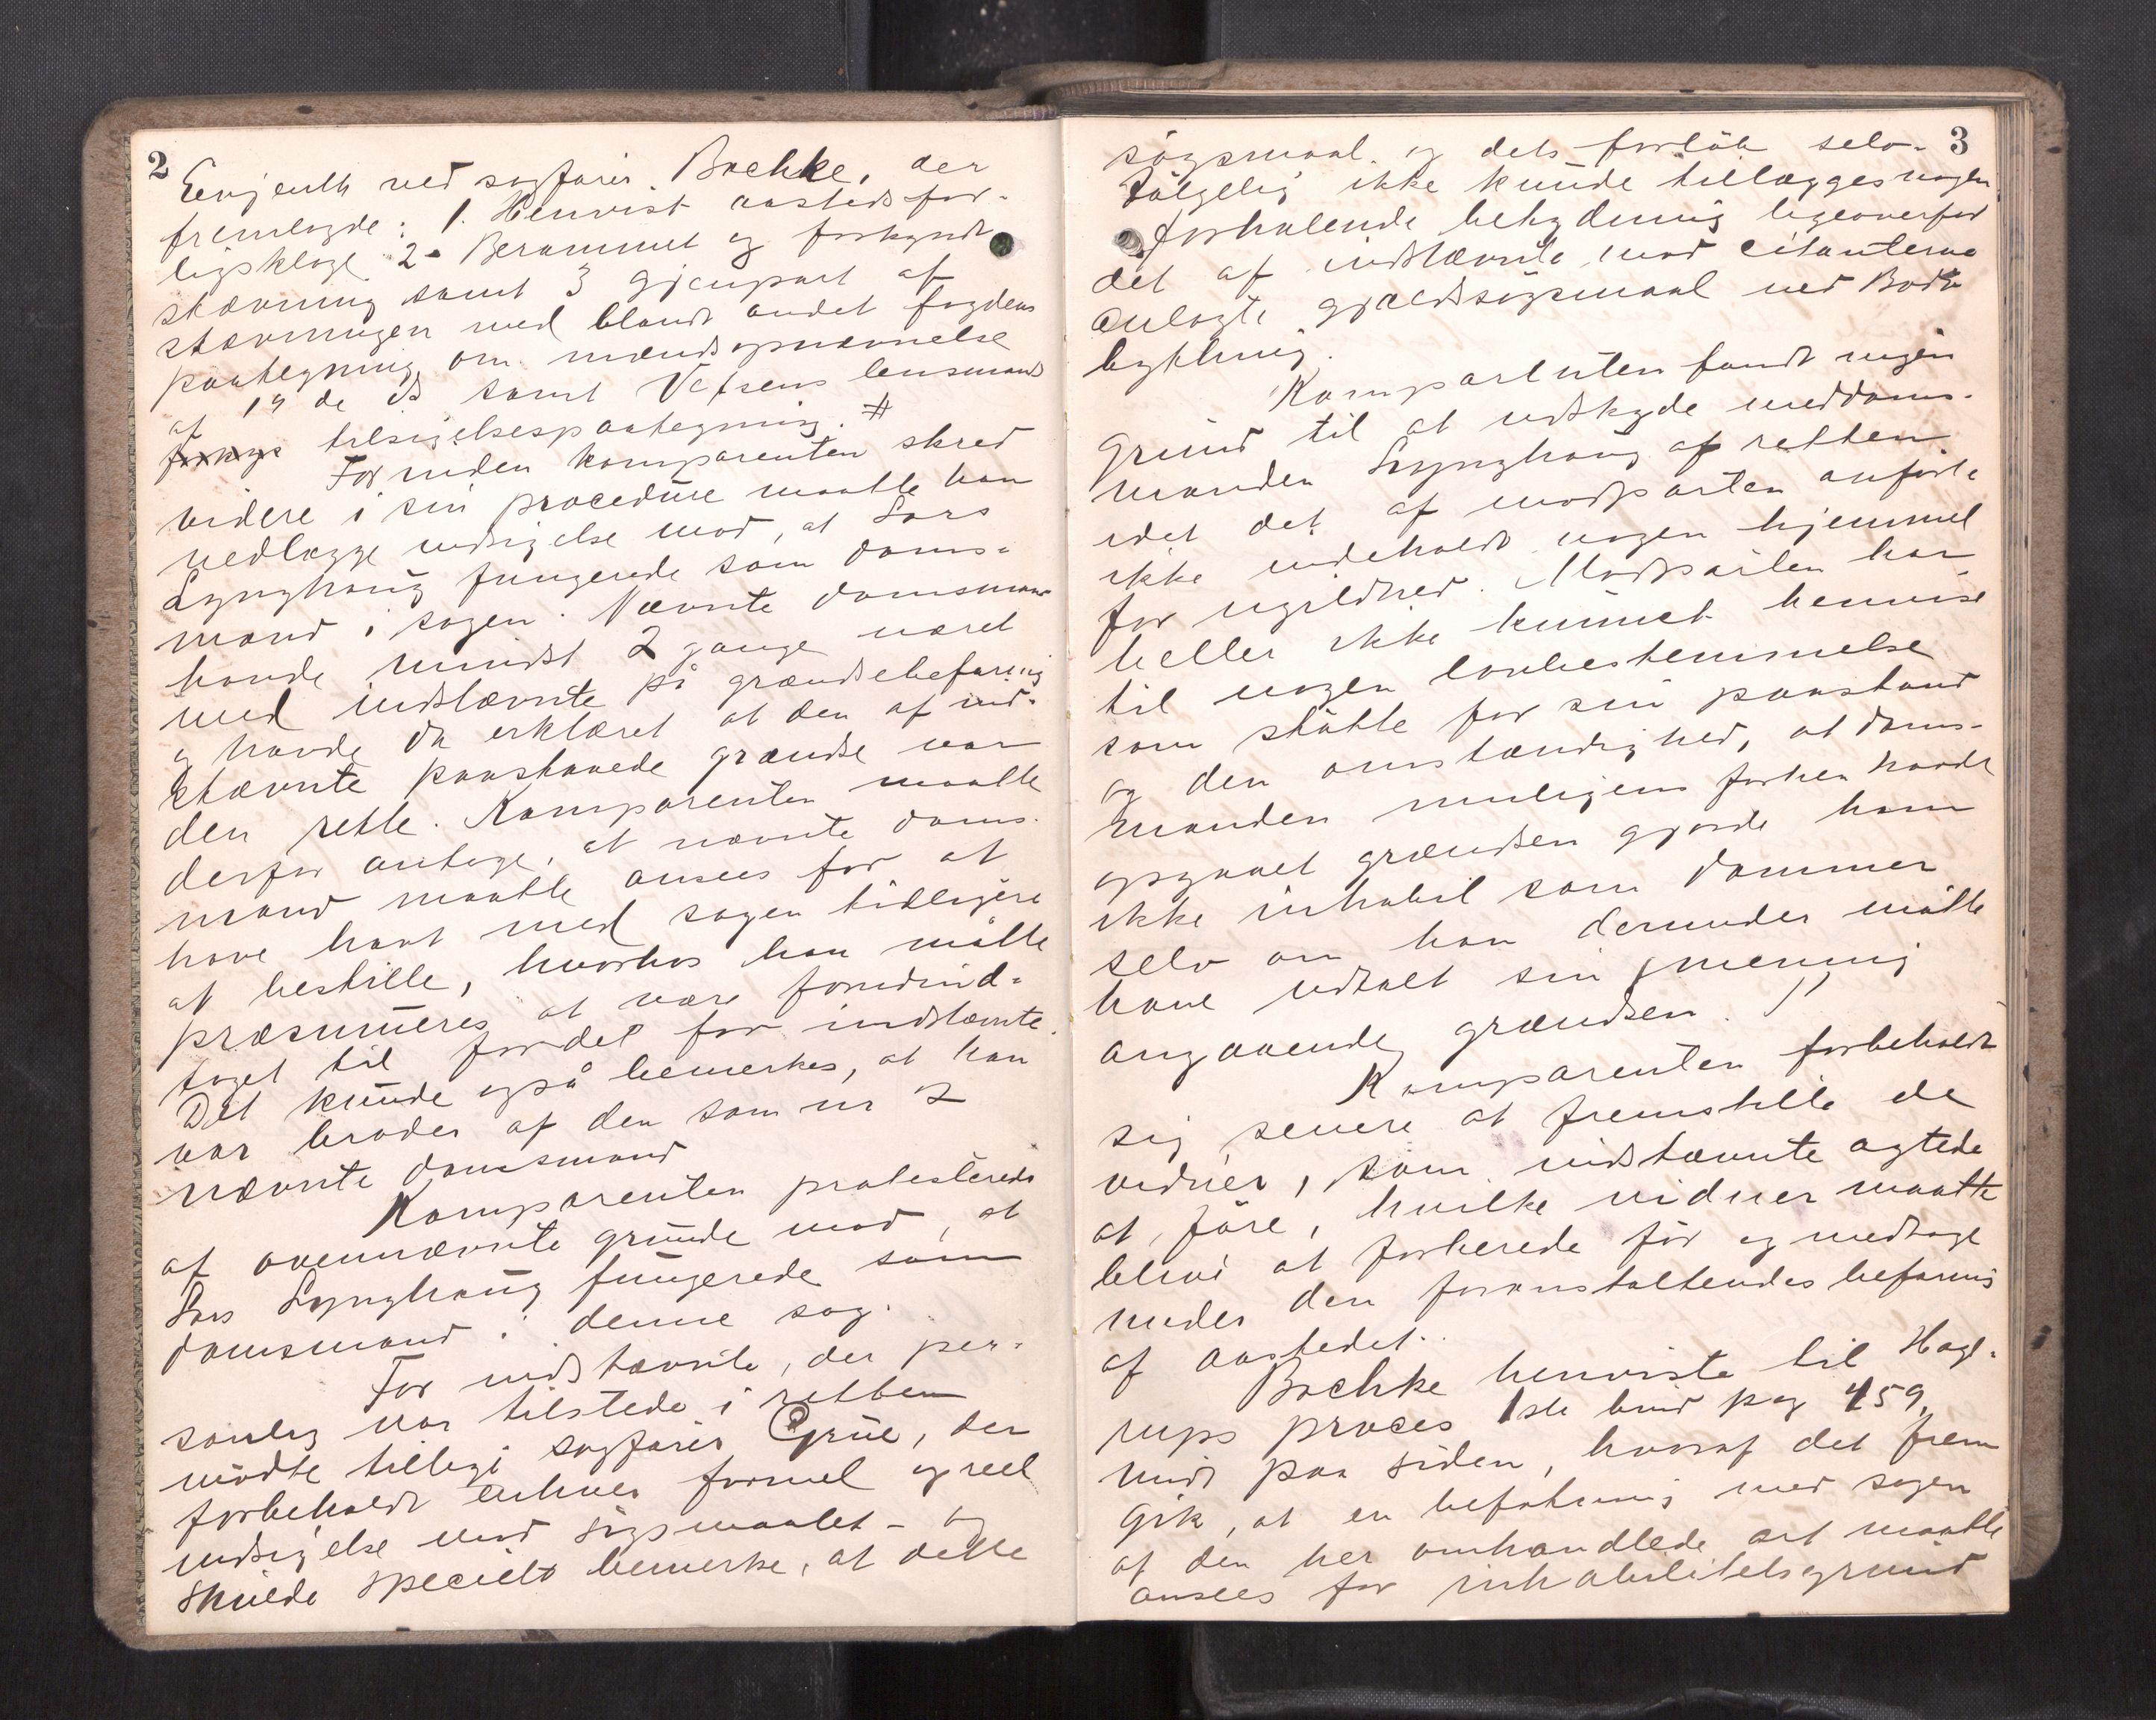 2
Evjenth ved sagfører Bochke, der
fremlagde: 1. Henvist aastedsfor-
ligsklage 2- Berammet og forkyndt
stævning samt 3 gjenpart af
stævningen med blandt andet fogdens
paategning om mændsopnævnelse
af 19 de ds samt Vefsens lensmands
tilsigelsespaategning. #
Forinden komparenten skred
videre i sin procedüre maatte han
nedlægge indsigelse mod, at Lars
Lynghaüg fungerede som doms-
mand i sagen. Nævnte domsmand
havde mindst 2 gange været
med indstævnte på grændsebefaring
og havde da erklæret at den af ind-
stævnte paastaaede grændse var
den rette. Komparenten maatte
derfor antage, at nævnte doms-
mand maatte ansees for at
have havt med sagen tidligere
at bestille, hvorhos han måtte
præsümeres at være forudind-
taget til fordel for indstævnte.
Det kunde også bemerkes, at han
var broder af den som nr 2
nævnte domsmand
Komparenten protesterede
af ovennævnte grunde mod, at
Lars Lynghaüg füngerede som
domsmand i denne sag.
For indstævnte, der per-
sonlig var tilstede i retten
mødte tillige sagfører Grüe, der
forbeholdt enhver formel og reel
indsigelse mod søgsmaalet - og
skulde specielt bemerke, at dette
3
søgsmaal og dets forløb selv-
følgelig ikke kunde tillægges nogen
forhalende betydning ligeoverfor
det af indstævnte mod citanterne
anlagte gjældssøgsmaal ved Bodø
bythüng.
Komparenten fandt ingen
Grund til at udskyde meddoms-
manden Lynghaüg af retten
idet det af modparten anførte
ikke indeholdt nogen hjemmel
for ugildhed. Modparten har
heller ikke kunnet henvise
til nogen lovbestemmelse
som støtte for sin paastand
og den omstændighed, at doms-
manden muligens forhen havde
opgaaet grændsen gjorde ham
ikke inhabil som dommer
selv om han derunder måtte
have udtalt sin mening
angaaende grændsen.
Komparenten forbeholdt
sig senere at fremstille de
vidner, som indstævnte agtede
at føre, hvilke vidner maatte
blive at forberede før og medtage
under den foranstaltendes befaring
af aastedet.
Bochke henviste til Hage-
rups proces 1ste bind pag 459,
midt paa siden, hvoraf det frem
gik, at en befatning med sagen
af den her omhandlede art maatte
ansees for inhabilitetsgrund